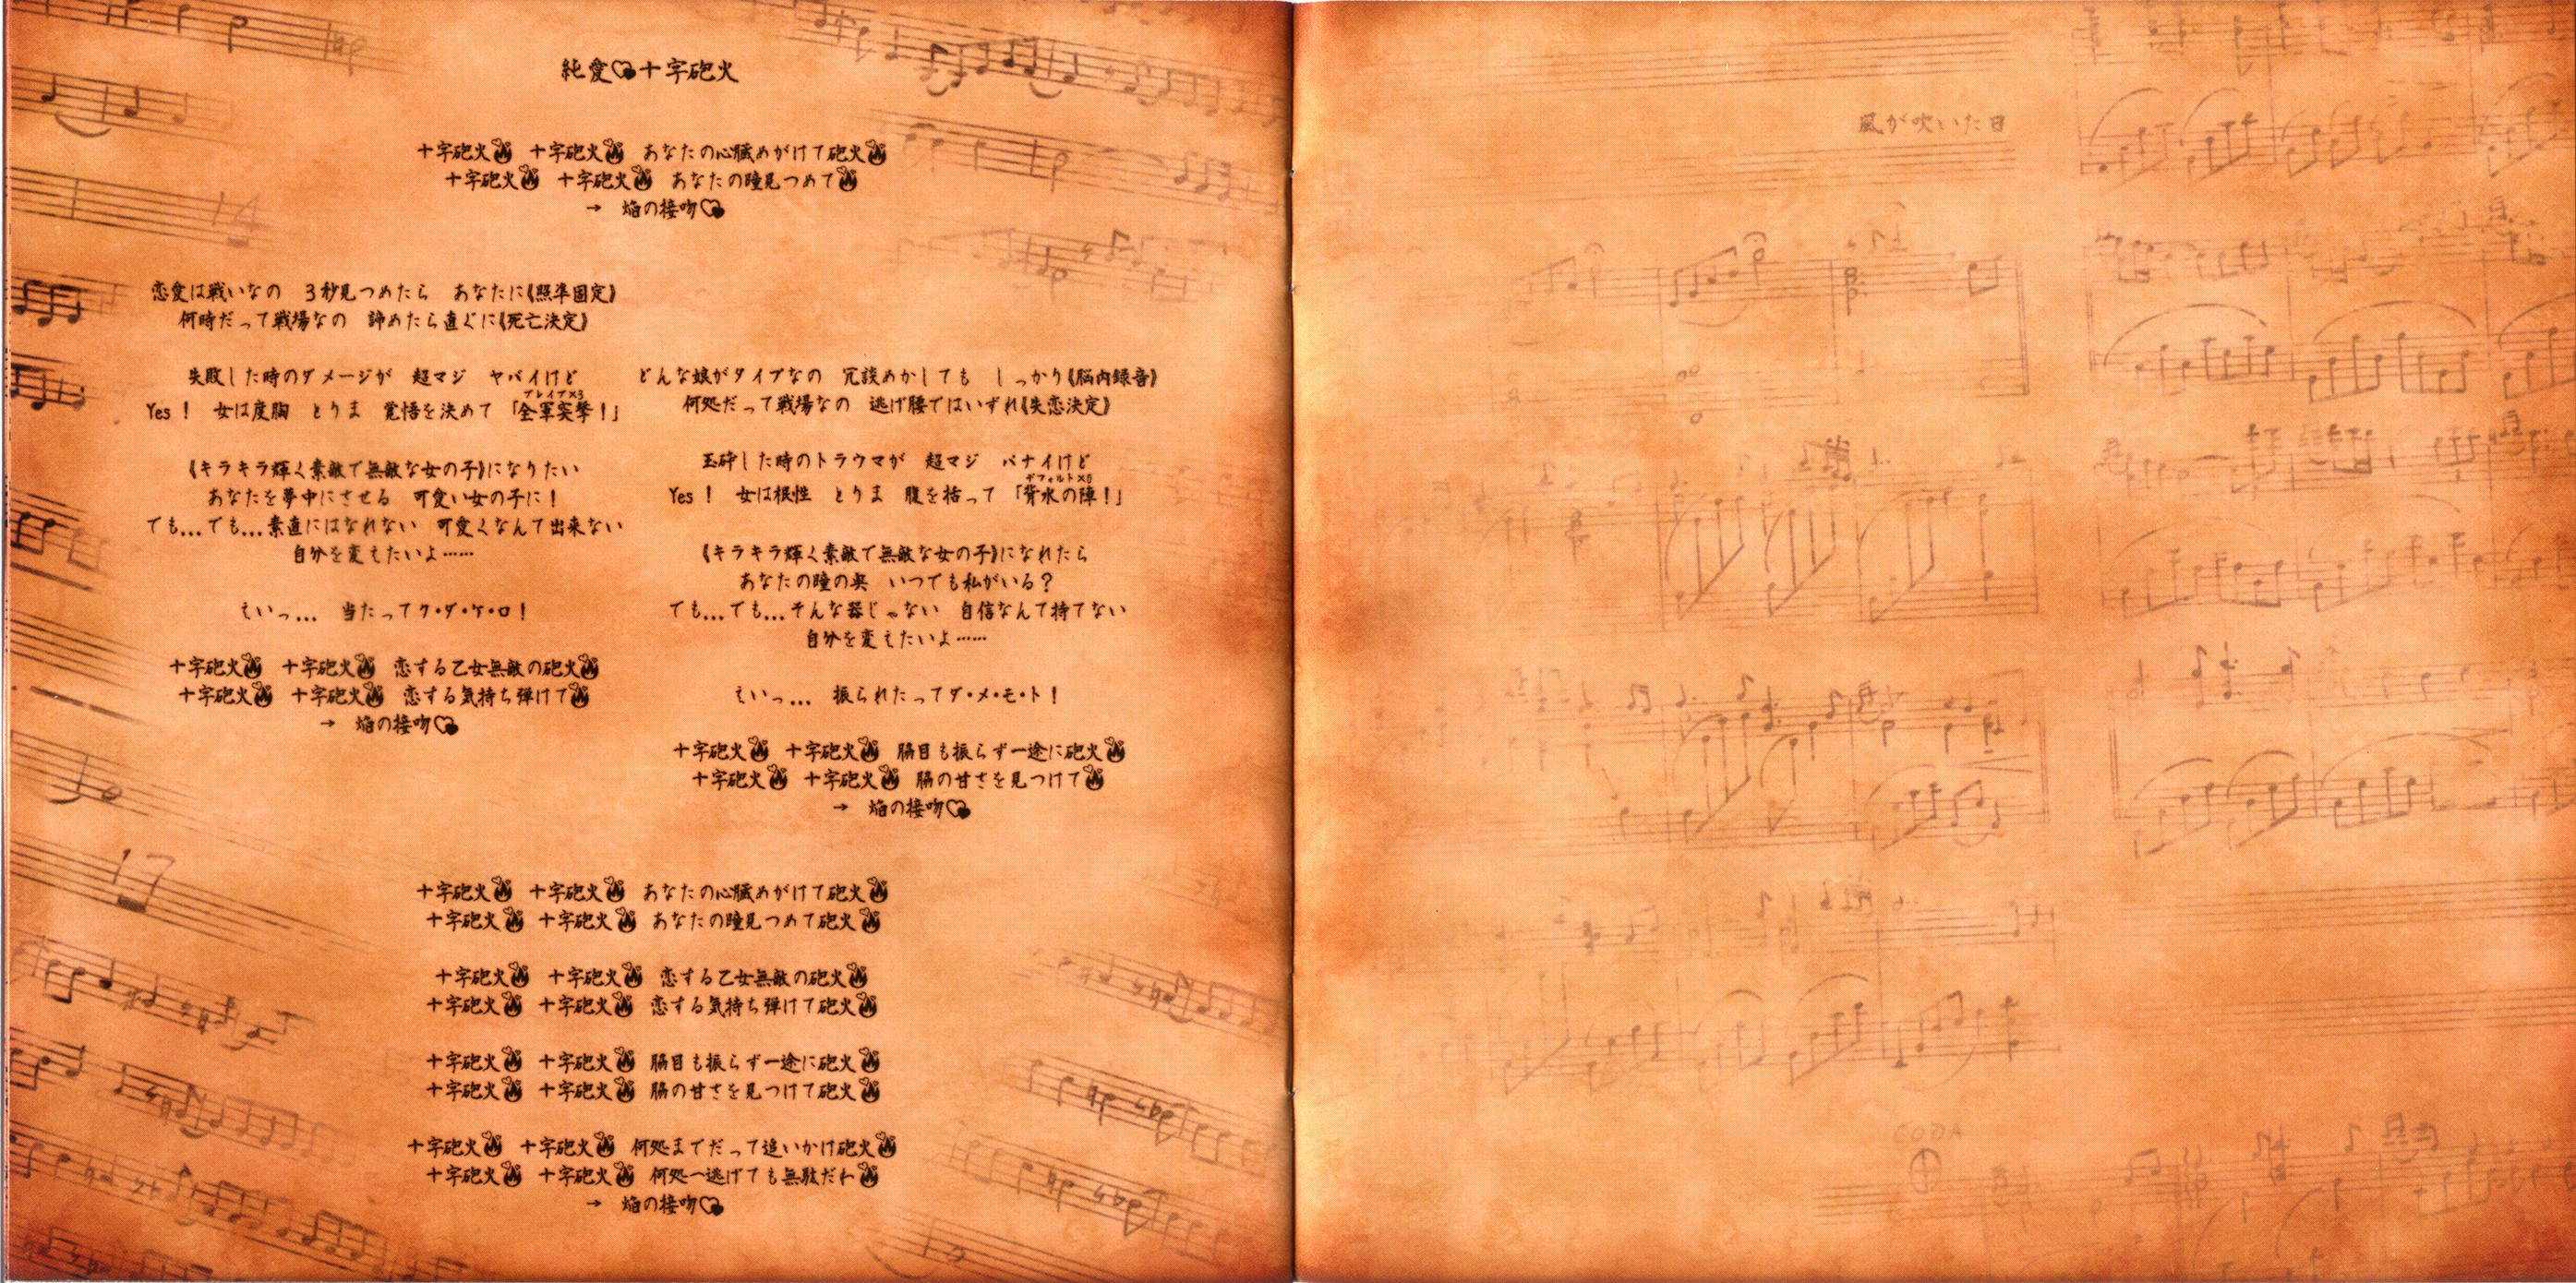 純愛♡十字砲火
十字砲火🔥 十字砲火🔥 あなたの心臓めがけて砲火🔥
十字砲火🔥 十字砲火🔥 あなたの瞳見つめて🔥
→ 焔の接吻♡
恋愛は戦いなの 3秒見つめたら あなたに《照準固定》
何時だって戦場なの 諦めたら直ぐに《死亡決定》
失敗した時のダメージが 超マジ ヤバイけど
ブレイブ×3
Yes! 女は度胸 とりま 覚悟を決めて 「全軍突撃!」
《キラキラ輝く素敵で無敵な女の子》になりたい
あなたを夢中にさせる 可愛い女の子に!
でも…でも…素直にはなれない 可愛くなんて出来ない
自分を変えたいよ……
えいっ… 当たってク・ダ・ケ・ロ!
十字砲火🔥 十字砲火🔥 恋する乙女無敵の砲火🔥
十字砲火🔥 十字砲火🔥 恋する気持ち弾けて🔥
→ 焔の接吻♡
どんな娘がタイプなの 冗談めかしても しっかり《脳内録音》
何処だって戦場なの 逃げ腰ではいずれ《失恋決定》
玉砕した時のトラウマが 超マジ パナイけど
デフォルト×0
Yes! 女は根性 とりま 腹を括って 「背水の陣!」
《キラキラ輝く素敵で無敵な女の子》になれたら
あなたの瞳の奥 いつでも私がいる?
でも…でも…そんな器じゃない 自信なんて持てない
自分を変えたいよ……
えいっ… 振られたってダ・メ・モ・ト!
十字砲火🔥 十字砲火🔥 脇目も振らず一途に砲火🔥
十字砲火🔥 十字砲火🔥 脇の甘さを見つけて🔥
→ 焔の接吻♡
十字砲火🔥 十字砲火🔥 あなたの心臓めがけて砲火🔥
十字砲火🔥 十字砲火🔥 あなたの瞳見つめて砲火🔥
十字砲火🔥 十字砲火🔥 恋する乙女無敵の砲火🔥
十字砲火🔥 十字砲火🔥 恋する気持ち弾けて砲火🔥
十字砲火🔥 十字砲火🔥 脇目も振らず一途に砲火🔥
十字砲火🔥 十字砲火🔥 脇の甘さを見つけて砲火🔥
十字砲火🔥 十字砲火🔥 何処までだって追いかけ砲火🔥
十字砲火🔥 十字砲火🔥 何処へ逃げても無駄だわ🔥
→ 焔の接吻♡
14
17
風が吹いた日